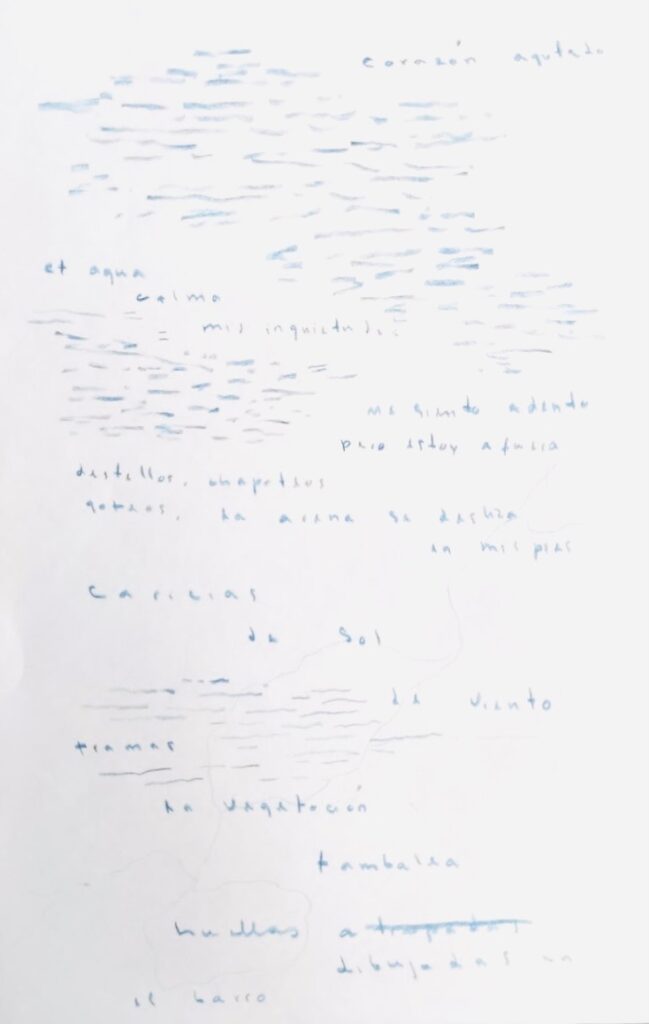 corazón agitado
el agua
calma
mis inquietudes
me siento adentro
pero estoy afuera
destellos, chapoteos
goteos, la arena se desliza
en mis pies
caricias
de sol
de viento
tramas
la vegetación
tambalea
huellas a
dibujadas en
el barro